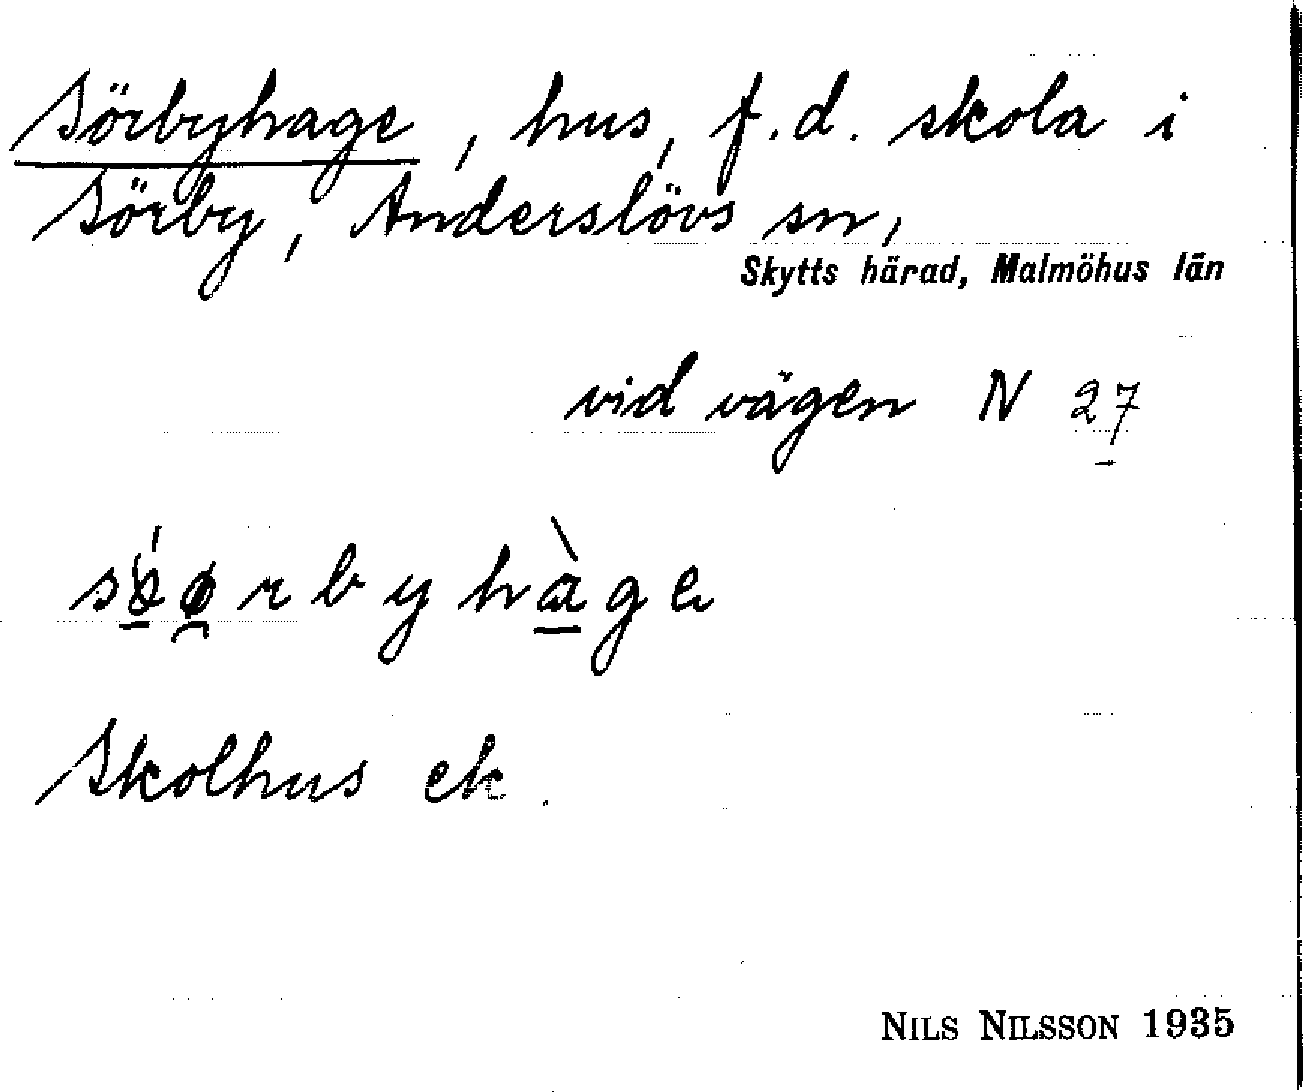 Sörbyhage, hus, f.d. skola i
Sörby, Anderslövs sn,
Skytts härad, Malmöhus län
vid vägen N 27
Skolhus ek.
NILS NILSSON 1935